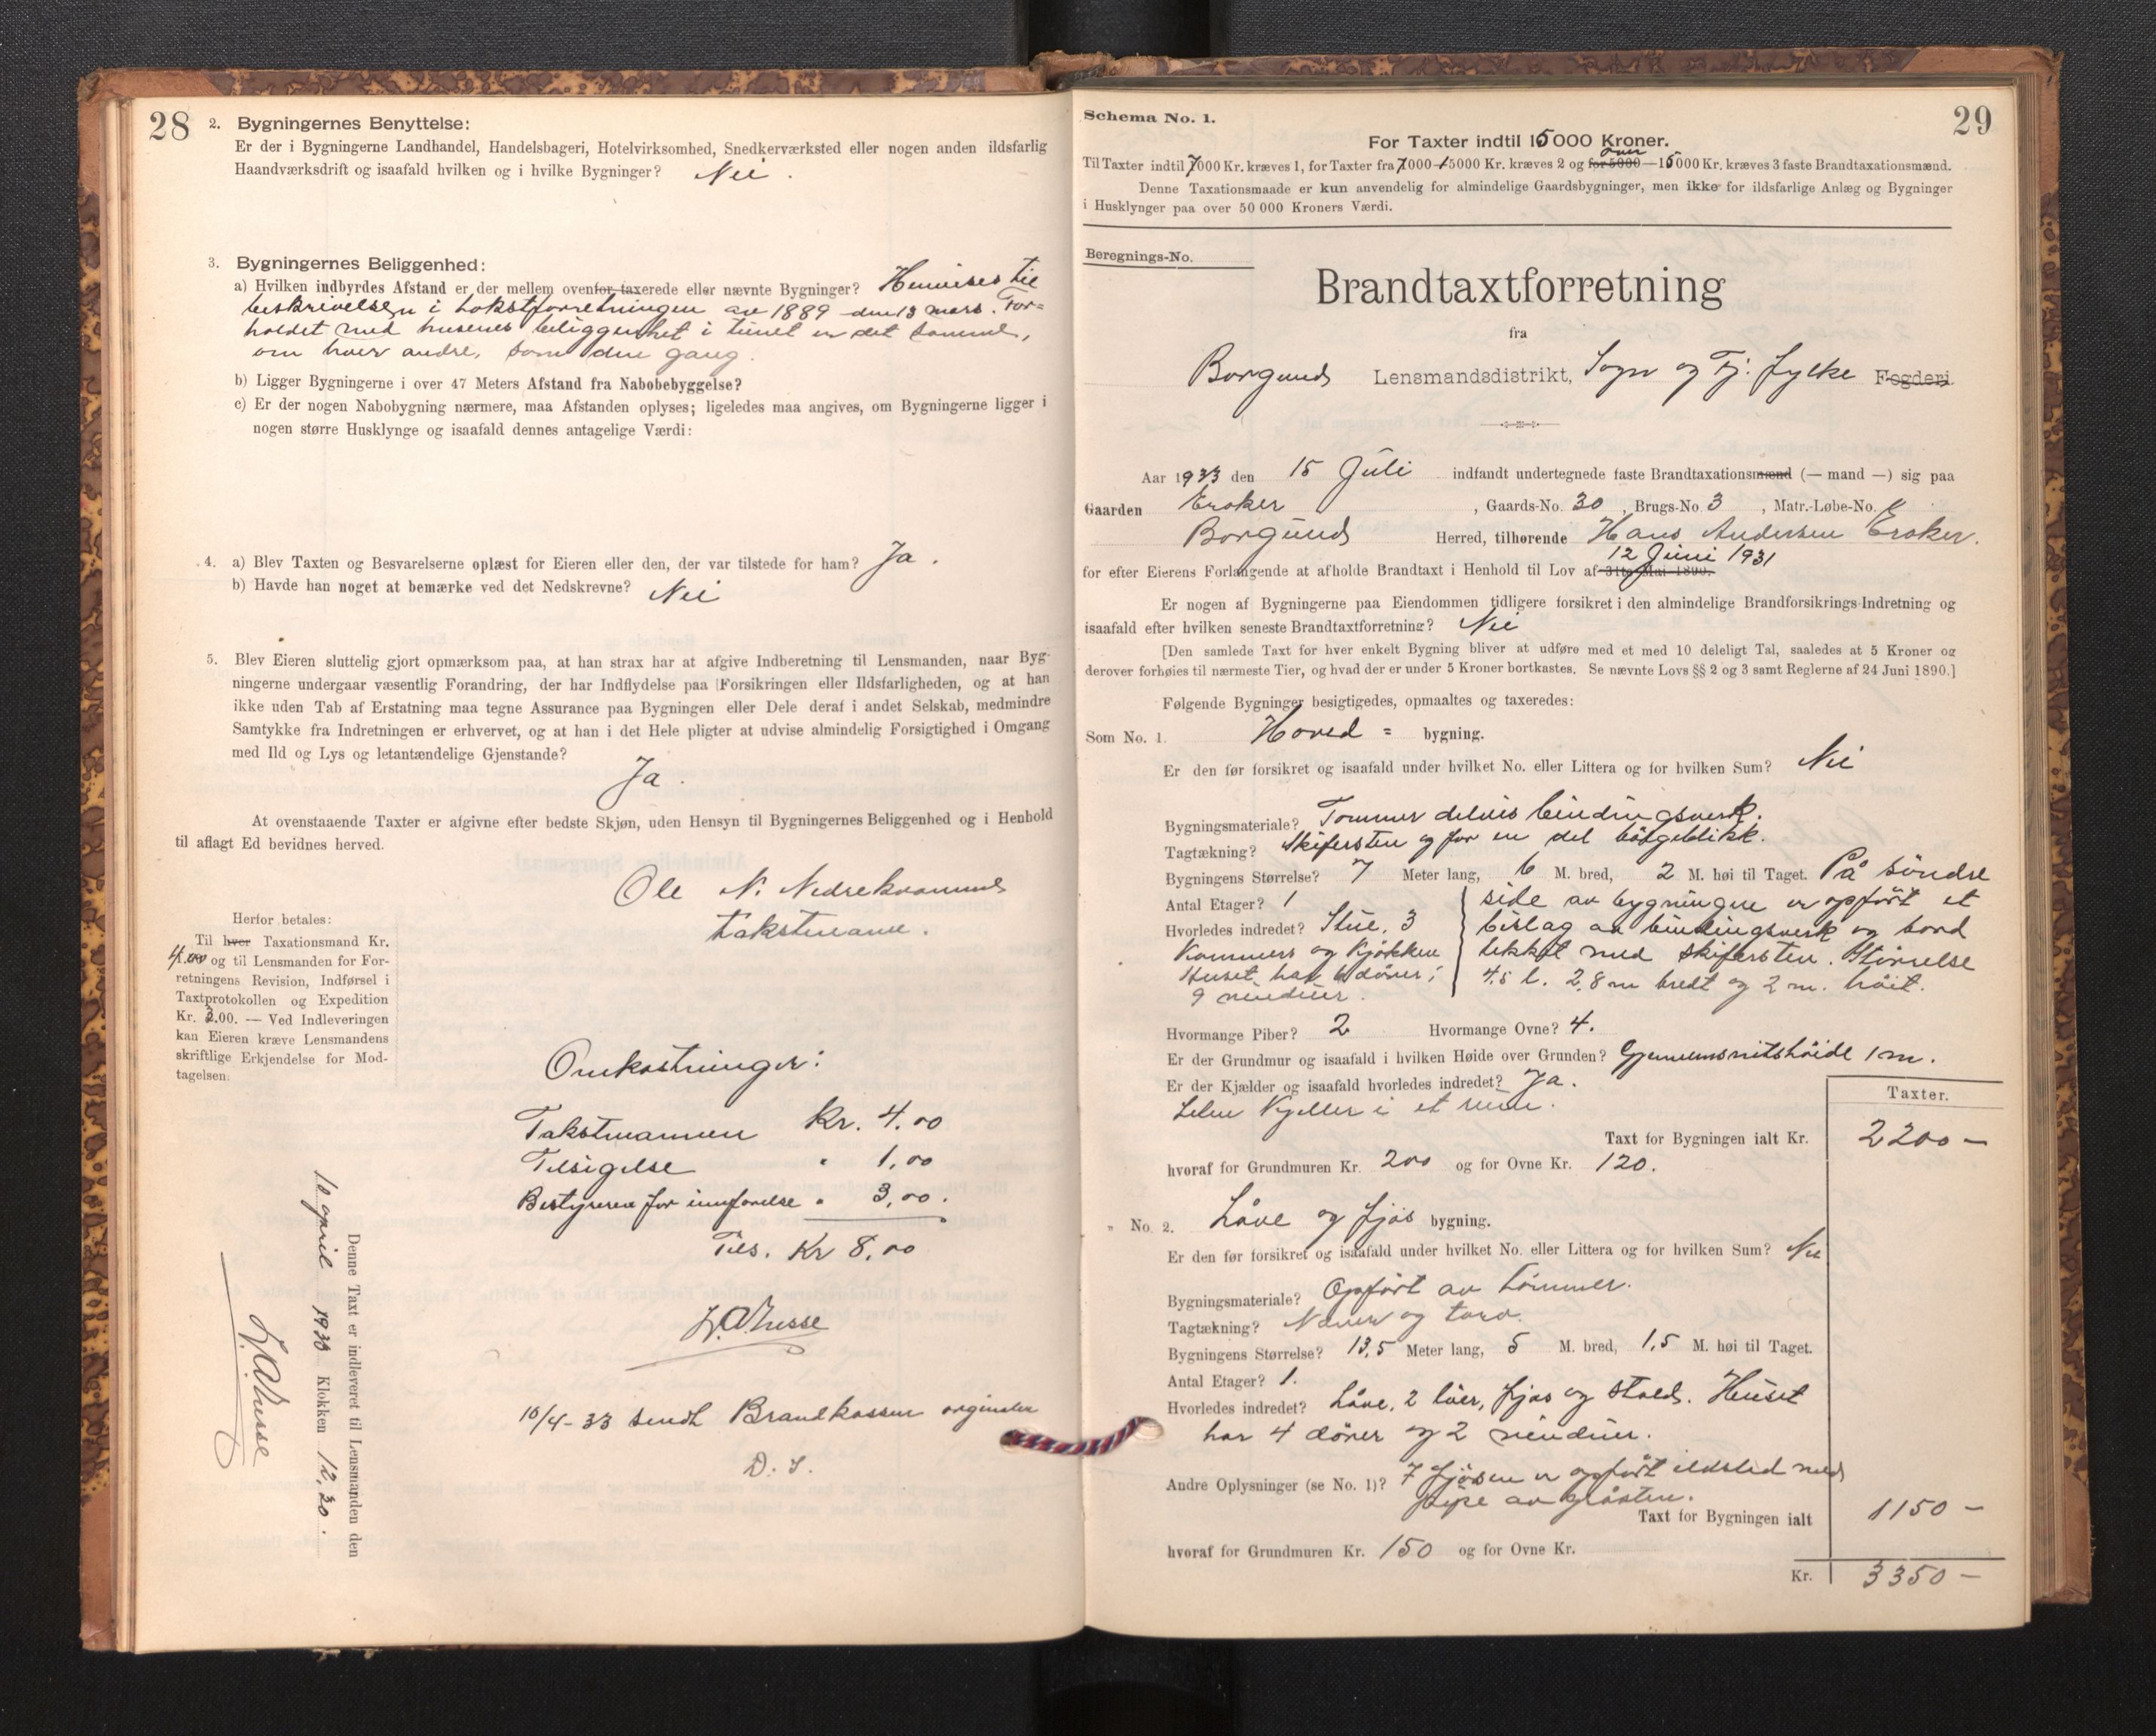 28
2. Bygningernes Benyttelse:
Er der i Bygningerne Landhandel, Handelsbageri, Hotelvirksomhed, Snedkerværksted eller nogen anden ildsfarlig
Haandværksdrift og isaafald hvilken og i hvilke Bygninger? Nei.
3. Bygningernes Beliggenhed:
a) Hvilken indbyrdes Afstand er der mellem ovenfor taxerede eller nævnte Bygninger? Henvises til
beskrivelsen i takstforretningen av 1889 den 13 mars. For-
holdet med husenes beliggenhet i tunet er det samme,
om hver andre, som den gang.
b) Ligger Bygningerne i over 47 Meters Afstand fra Nabobebyggelse?
c) Er der nogen Nabobygning nærmere, maa Afstanden oplyses; ligeledes maa angives, om Bygningerne ligger i
nogen større Husklynge og isaafald dennes antagelige Værdi:
4. a) Blev Taxten og Besvarelserne oplæst for Eieren eller den, der var tilstede for ham? Ja.
b) Havde han noget at bemærke ved det Nedskrevne? Nei
5. Blev Eieren sluttelig gjort opmærksom paa, at han strax har at afgive Indberetning til Lensmanden, naar Byg-
ningerne undergaar væsentlig Forandring, der har Indflydelse paa Forsikringen eller Ildsfarligheden, og at han
ikke uden Tab af Erstatning maa tegne Assurance paa Bygningen eller Dele deraf i andet Selskab, medmindre
Samtykke fra Indretningen er erhvervet, og at han i det Hele pligter at udvise almindelig Forsigtighed i Omgang
med Ild og Lys og letantændelige Gjenstande?
Ja.
At ovenstaaende Taxter er afgivne efter bedste Skjøn, uden Hensyn til Bygningernes Beliggenhed og i Henhold
til aflagt Ed bevidnes herved.
Ole N. Nedrekvamme
takstmann.
Herfor betales:
Til hver Taxationsmand Kr.
4.00 og til Lensmanden for For-
retningens Revision, Indførsel i
Taxtprotokollen og Expedition
Kr. 3.00. — Ved Indleveringen
kan Eieren kræve Lensmandens
skriftlige Erkjendelse for Mod-
tagelsen.
Omkostninger:
Takstmannen Kr. 4.00
Tilsigelse " 1,00
Bestyreren for innførelse " 3,00.
Tils. Kr 8,00
10/4-33 sendt Brandkassen
D. S.
Denne Taxt er indleveret til Lensmanden den
10 april 1933 Klokken 12,30.
29
Schema No. 1.
For Taxter indtil 15000 Kroner.
Til Taxter indtil 7000 Kr. kræves 1, for Taxter fra 7000—15000 Kr. kræves 2 og for 5000 over —15000 Kr. kræves 3 faste Brandtaxationsmænd.
Denne Taxationsmaade er kun anvendelig for almindelige Gaardsbygninger, men ikke for ildsfarlige Anlæg og Bygninger
i Husklynger paa over 50 000 Kroners Værdi.
Beregnings-No.
Brandtaxtforretning
fra
Borgund Lensmandsdistrikt, Sogn og Fj. fylke Fogderi
Aar 1933 den 15 Juli indfandt undertegnede faste Brandtaxationsmænd (— mand —) sig paa
Gaarden Eraker, Gaards-No. 30, Brugs-No. 3, Matr.-Løbe-No.
Borgund Herred, tilhørende Hans Andersen Eraker.
12 Juni 1931
for efter Eierens Forlangende at afholde Brandtaxt i Henhold til Lov af 31te Mai 1890.
Er nogen af Bygningerne paa Eiendommen tidligere forsikret i den almindelige Brandforsikrings-Indretning og
isaafald efter hvilken seneste Brandtaxtforretning? Nei
[Den samlede Taxt for hver enkelt Bygning bliver at udføre med et med 10 deleligt Tal, saaledes at 5 Kroner og
derover forhøies til nærmeste Tier, og hvad der er under 5 Kroner bortkastes. Se nævnte Lovs §§ 2 og 3 samt Reglerne af 24 Juni 1890.]
Følgende Bygninger besigtigedes, opmaaltes og taxeredes:
Som No. 1. Hoved = bygning.
Er den før forsikret og isaafald under hvilket No. eller Littera og for hvilken Sum? Nei
Bygningsmateriale? Tømmer delvis bindingsverk.
Tagtækning? Skifersten og for en del bølgeblikk.
Bygningens Størrelse? 7 Meter lang, 6 M. bred, 2 M. høi til Taget. På søndre
Antal Etager? 1 side av bygningen er opført et
Hvorledes indredet? Stue, 3 bislag av bindingsverk og bord
Kammers og Kjøkken tekket med skifersten. Størrelse
Huset har 6 dører, 4,5 l. 2,8 m bredt og 2 m. høit.
9 vinduer.
Hvormange Piber? 2 Hvormange Ovne? 4.
Er der Grundmur og isaafald i hvilken Høide over Grunden? Gjennemsnitshøide 1 m.
Er der Kjælder og isaafald hvorledes indredet? Ja.
Liten Kjeller i et rum.
Taxter.
Taxt for Bygningen ialt Kr. 2200 —
hvoraf for Grundmuren Kr. 200 og for Ovne Kr. 120.
" No. 2. Låve og fjøs bygning.
Er den før forsikret og isaafald under hvilket No. eller Littera og for hvilken Sum? Nei
Bygningsmateriale? Opført av tømmer.
Tagtækning? Never og torv.
Bygningens Størrelse? 13,5 Meter lang, 5 M. bred, 1,5 M. høi til Taget.
Antal Etager? 1.
Hvorledes indredet? Låve, 2 løer, fjøs og stald. Huset
har 4 dører og 2 vinduer.
Andre Oplysninger (se No. 1)? I fjøsen er opført ildsted med
pipe av gråsten.
Taxt for Bygningen ialt 1150 —
hvoraf for Grundmuren Kr. 150 og for Ovne Kr.
Kr. 3350 —